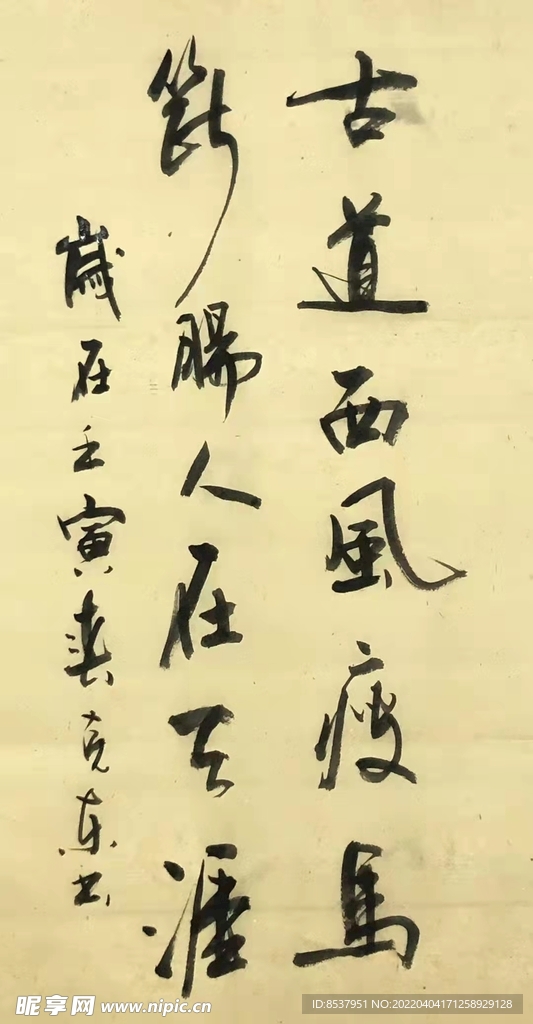 古道西風瘦馬
斷腸人在天涯
歲在壬寅春克東书
昵享网 www.nipic.cn
ID:8537951 NO:20220404171258929128